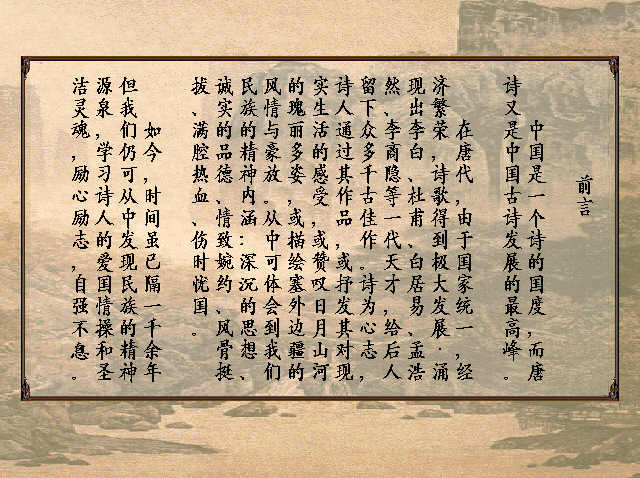 前言
中国是一个诗的国度，而唐
诗又是中国古诗发展的最高峰。
在唐代，由于国家统一，经
济繁荣，诗歌得到极大发展．涌
现出李白、杜甫、白居易、孟浩
然、李商隐等一代天才，给后人
留下众多千古佳作。诗为心志，
诗人通过其作品，或抒发其对现
实生活的感受，或赞叹日月山河
的瑰丽多姿，或描绘塞外边疆的
风情与豪放。从中可体会到我们
民族的精神内涵：深沉的思想、
诚实的品德、情致婉约、风骨挺
拔、满腔热血、伤时忧国。
如今，时间虽已隔一千余年
但我们仍可从中发现民族的精神
源泉，学习诗人的爱国情操和圣
洁灵魂，励心励志，自强不息。